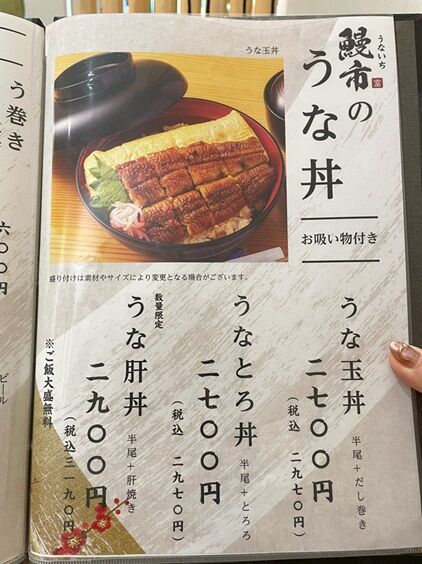 うないち
鰻市の
うな丼
お吸い物付き
うな玉丼
盛り付けは素材やサイズにより変更となる場合がございます。
うな玉丼
半尾+だし巻き
二七〇〇円
(税込 二九七〇円)
うなとろ丼
半尾+とろろ
二七〇〇円
(税込 二九七〇円)
数量限定
うな肝丼
半尾+肝焼き
二九〇〇円
(税込 三一九〇円)
※ご飯大盛無料
う巻き
六〇〇円
ビール